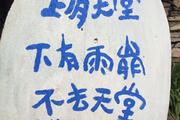 上有天堂
下有雨崩
不去天堂